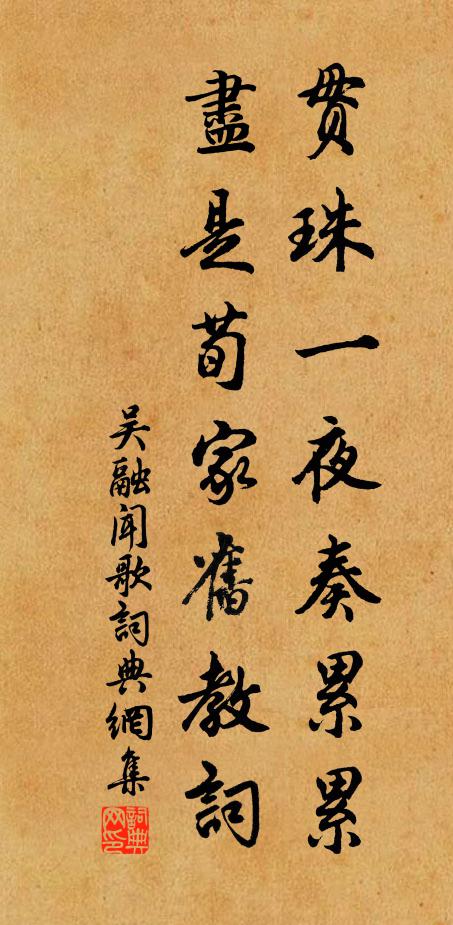 貫珠一夜奏累累
盡是荀家舊教詞
吴融聞歌詞典網集
詞典网印